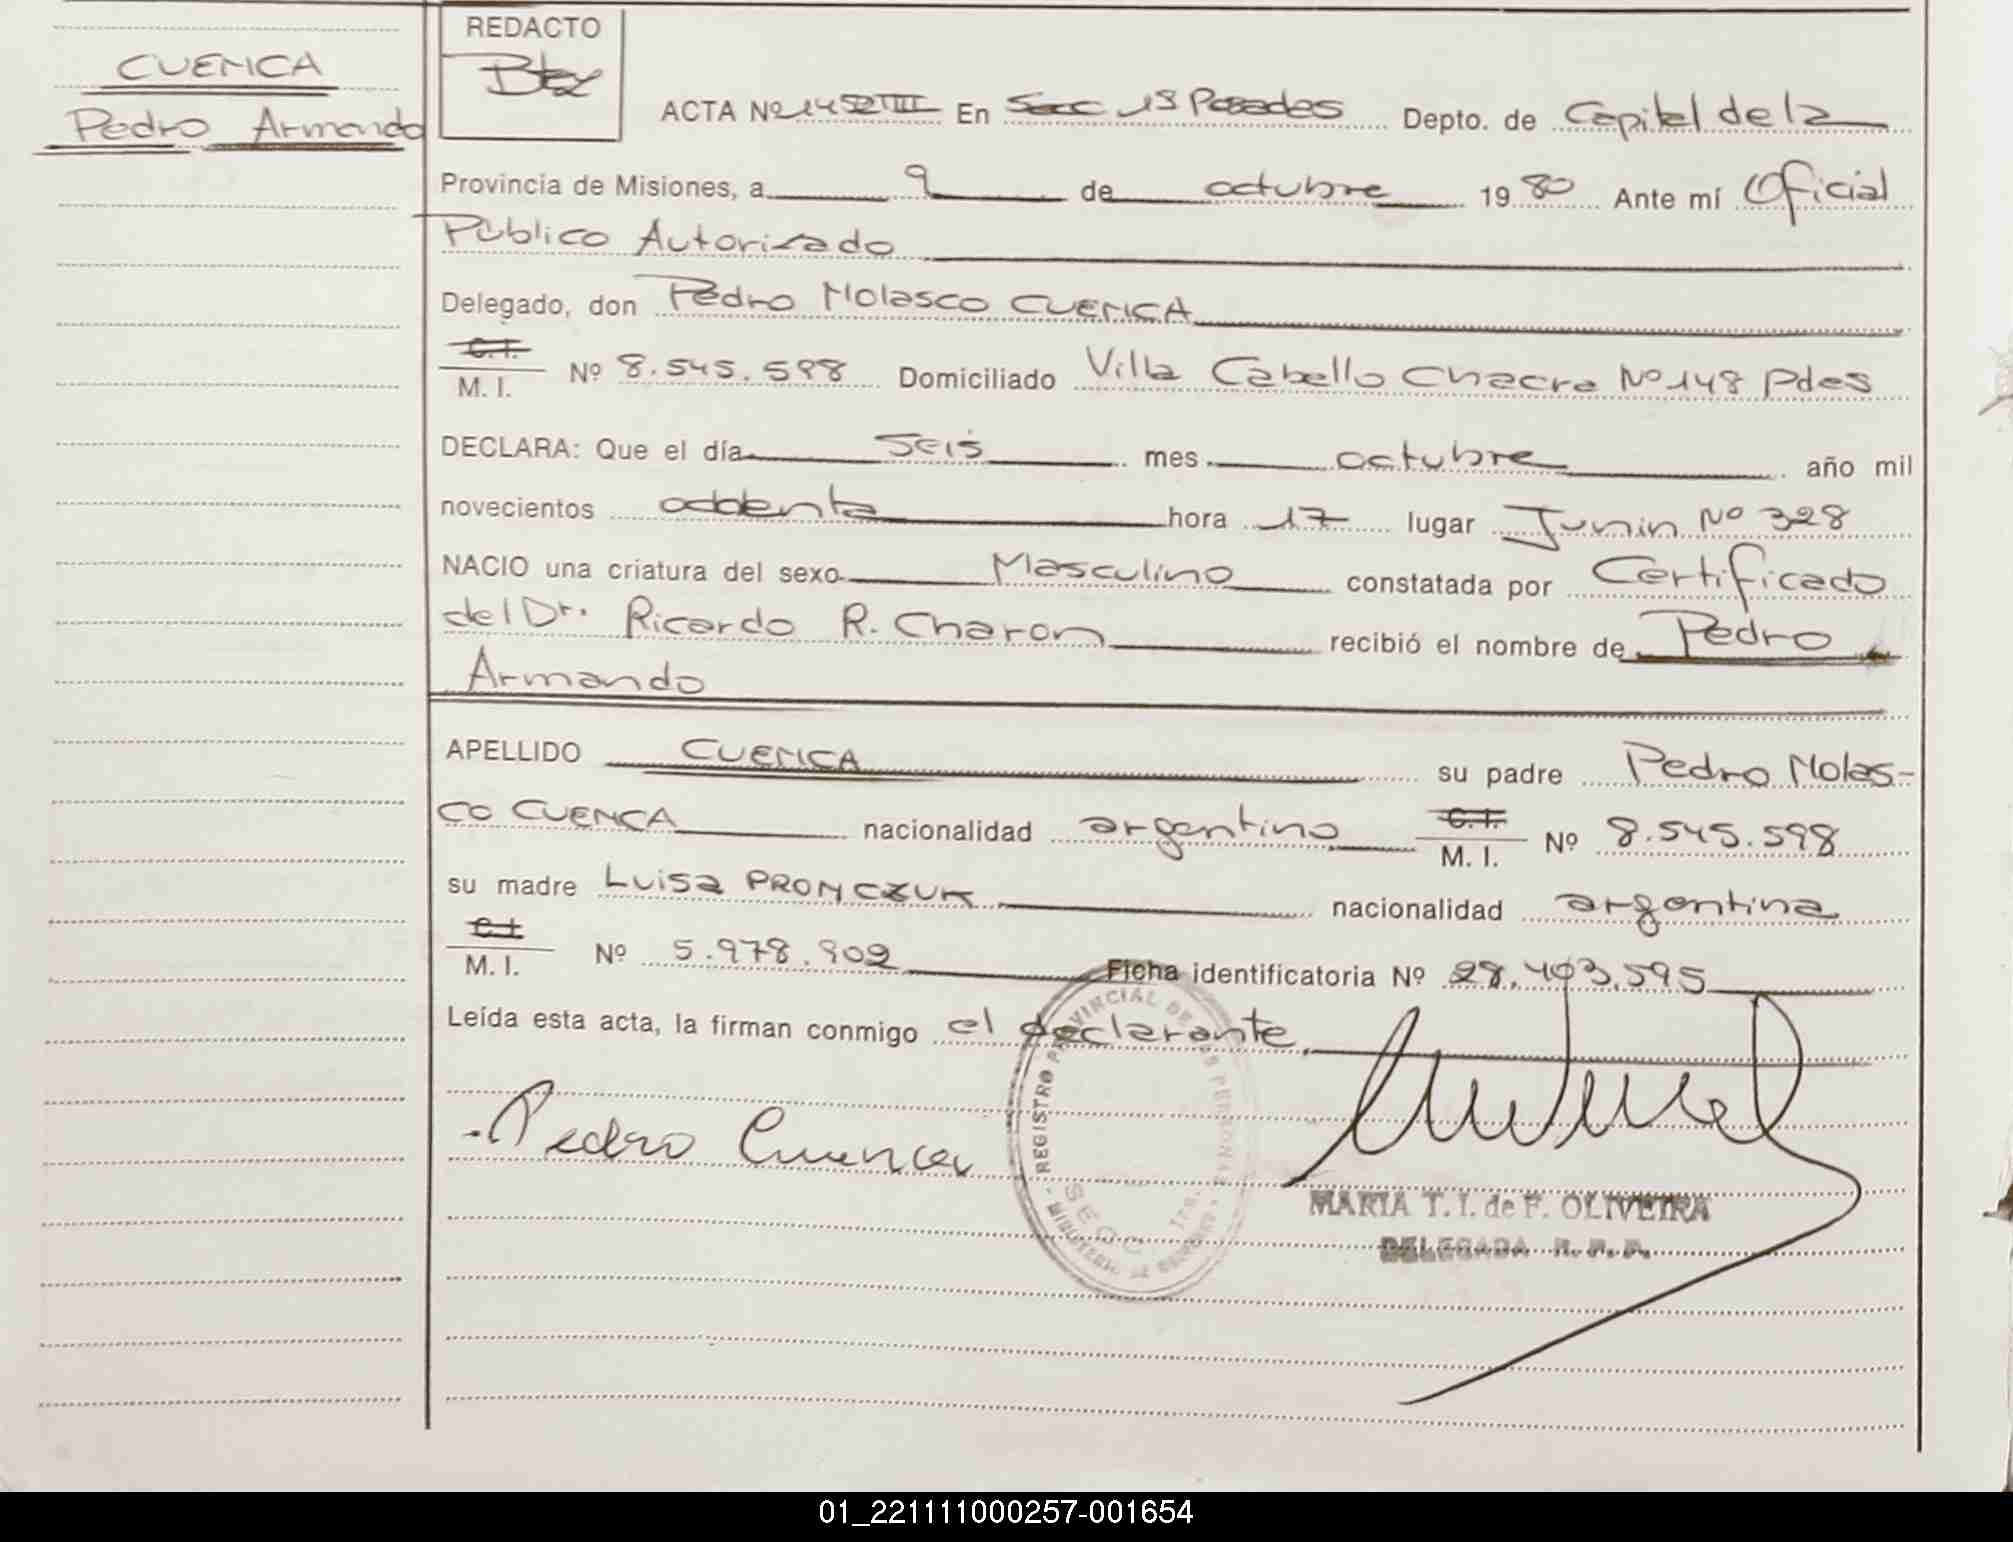 CUENCA
Pedro Armando
REDACTO
ACTA Nº 1452 TIII En Secc 1ª Posadas Depto. de Capital de la
Provincia de Misiones, a 9 de octubre 1980 Ante mí Oficial
Público Autorizado
Delegado, don Pedro Nolasco CUENCA
C.I.
M. I. Nº 8.545.598 Domiciliado Villa Cabello Chacra Nº 148 Pdas
DECLARA: Que el día seis mes octubre año mil
novecientos ochenta hora 17 lugar Junin Nº 328
NACIO una criatura del sexo Masculino constatada por Certificado
del Dr. Ricardo R. Charon recibió el nombre de Pedro
Armando
APELLIDO CUENCA su padre Pedro Nolas-
co CUENCA nacionalidad argentino C.I. M. I. Nº 8.545.598
su madre Luisa PRONCZUK nacionalidad argentina
C.I.
M. I. Nº 5.978.902 Ficha identificatoria Nº 28.403.595
Leída esta acta, la firman conmigo el declarante.
Pedro Cuenca
REGISTRO PROVINCIAL DE LAS PERSONAS
SECC. 1ra.
MINISTERIO DE GOBIERNO
MARIA T. I. de F. OLIVEIRA
DELEGADA R. P. P.
01_221111000257-001654